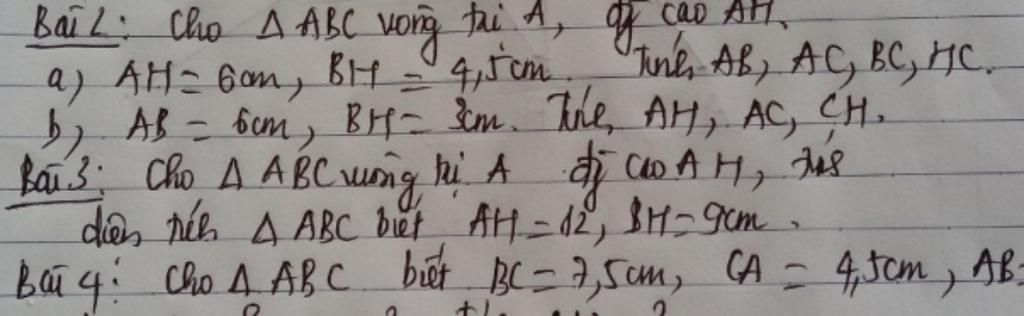 Bài 2: Cho Δ ABC vuông tại A, đg cao AH.
a) AH = 6cm, BH = 4,5cm. Tính AB, AC, BC, HC.
b, AB = 6cm, BH = 3cm. Tính AH, AC, CH.
Bài 3: Cho Δ ABC vuông tại A đg cao AH, tính
diện tích Δ ABC biết AH = 12, BH = 9cm.
Bài 4: Cho Δ ABC biết BC = 7,5cm, CA = 4,5cm, AB =